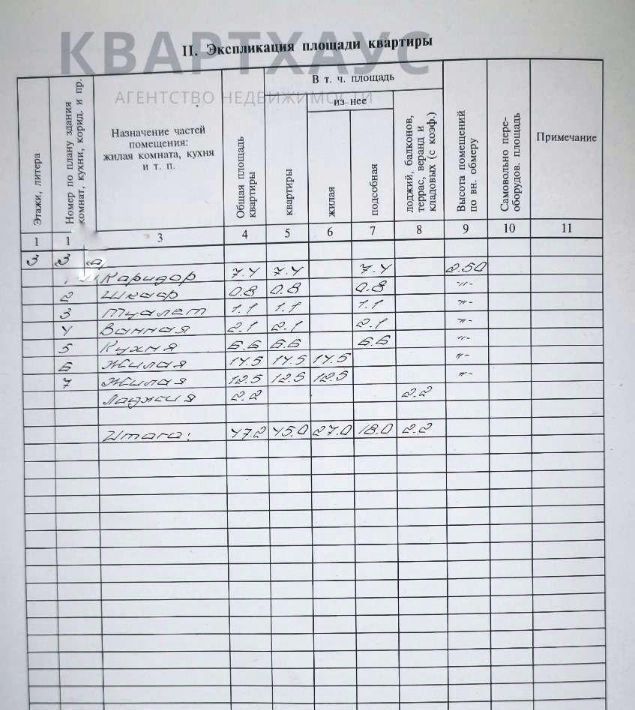 КВАРТХАУС
АГЕНТСТВО НЕДВИЖИМОСТИ
II. Экспликация площади квартиры
Этажи, литера
Номер по плану здания комнат, кухни, корид. и пр.
Назначение частей
помещения:
жилая комната, кухня
и т. п.
Общая площадь
квартиры
В т. ч. площадь
квартиры
из нее
жилая
подсобная
лоджий, балконов,
террас, веранд и
кладовых (с коэф.)
Высота помещений
по вн. обмеру
Самовольно пере-
оборудов. площадь
Примечание
1 1 3 4 5 6 7 8 9 10 11
3 3
Каридор 7.4 7.4 7.4 2.50
2 Шкаф 0.8 0.8 0.8 -"-
3 Туалет 1.1 1.1 1.1 -"-
4 Ванная 2.1 2.1 2.1 -"-
5 Кухня 6.6 6.6 6.6 -"-
6 Жилая 14.5 14.5 14.5 -"-
7 Жилая 12.5 12.5 12.5 -"-
Ладжия 2.2 2.2
Итага: 47.2 45.0 27.0 18.0 2.2